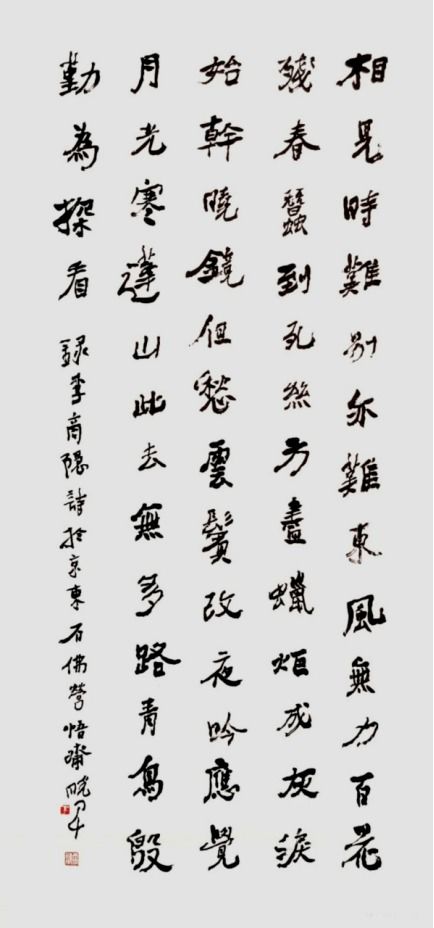 相見時難別亦難東風無力百花
殘春蠶到死絲方盡蠟炬成灰淚
始幹曉鏡但愁雲鬢改夜吟應覺
月光寒蓬山此去無多路青鳥殷
勤為探看
錄李商隱詩於京東石佛營悟齋